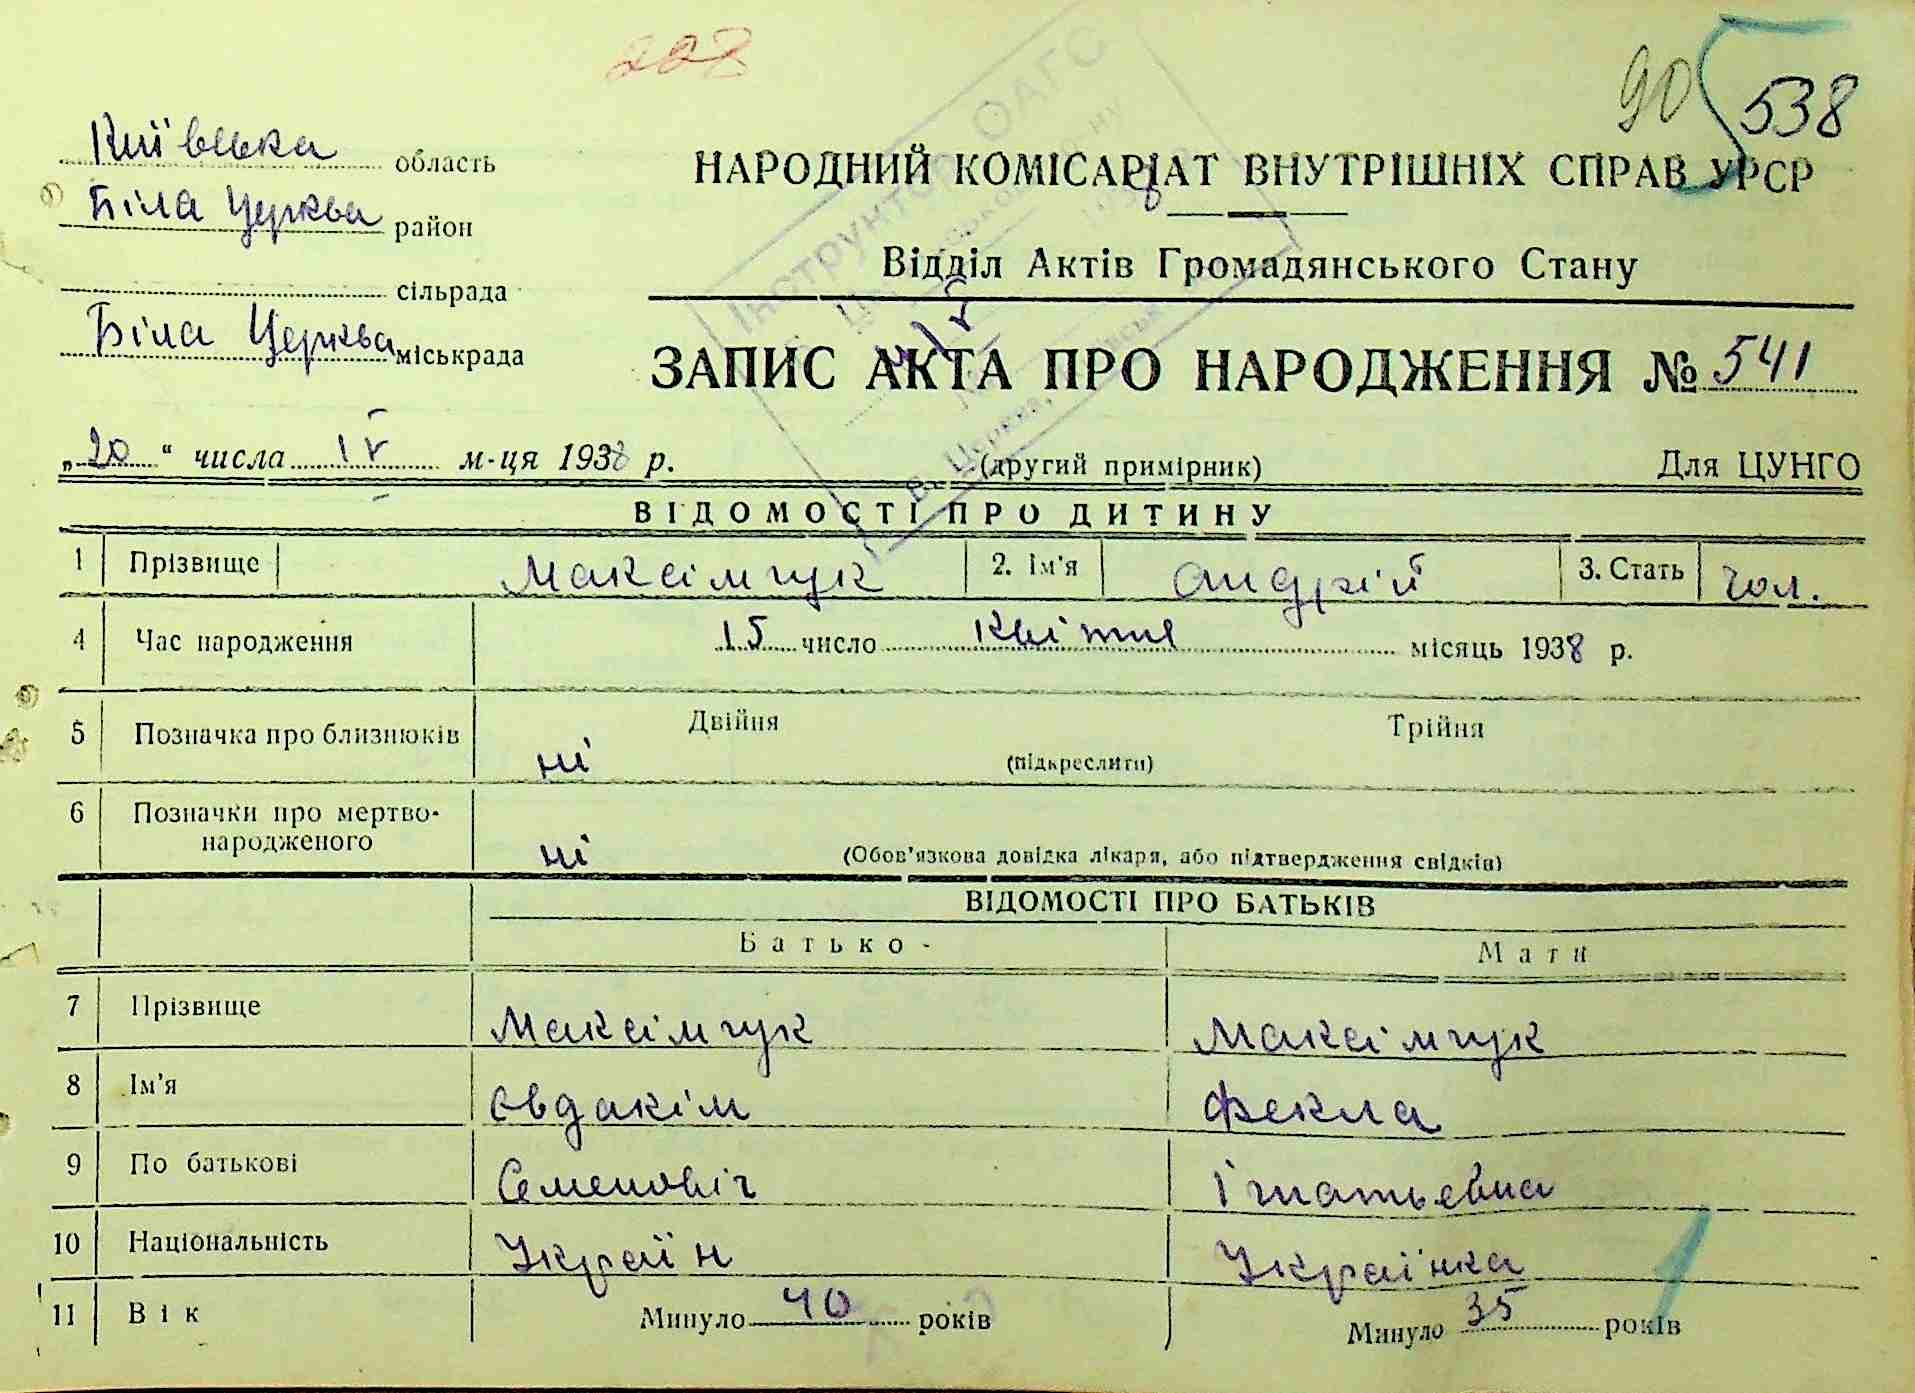 208
90 538
Київська область
Біла Церква район
сільрада
Біла Церква міськрада
НАРОДНИЙ КОМІСАРІАТ ВНУТРІШНІХ СПРАВ УРСР
Відділ Актів Громадянського Стану
ЗАПИС АКТА ПРО НАРОДЖЕННЯ № 541
„20“ числа IV м-ця 1938 р.
(другий примірник)
Для ЦУНГО
Інструктор ОАГС
ВІДОМОСТІ ПРО ДИТИНУ
1 Прізвище Максімчук 2. Ім'я Андрій 3. Стать чол.
4 Час народження 15 число Квітня місяць 1938 р.
5 Позначка про близнюків ні Двійня Трійня
(підкреслити)
6 Позначки про мертво-
народженого ні (Обов'язкова довідка лікаря, або підтвердження свідків)
ВІДОМОСТІ ПРО БАТЬКІВ
Батько - Мати
7 Прізвище Максімчук Максімчук
8 Ім'я Євдакім Фекла
9 По батькові Семеновіч Ігнатьевна
10 Національність Україн Українка
11 Вік Минуло 40 років Минуло 35 років